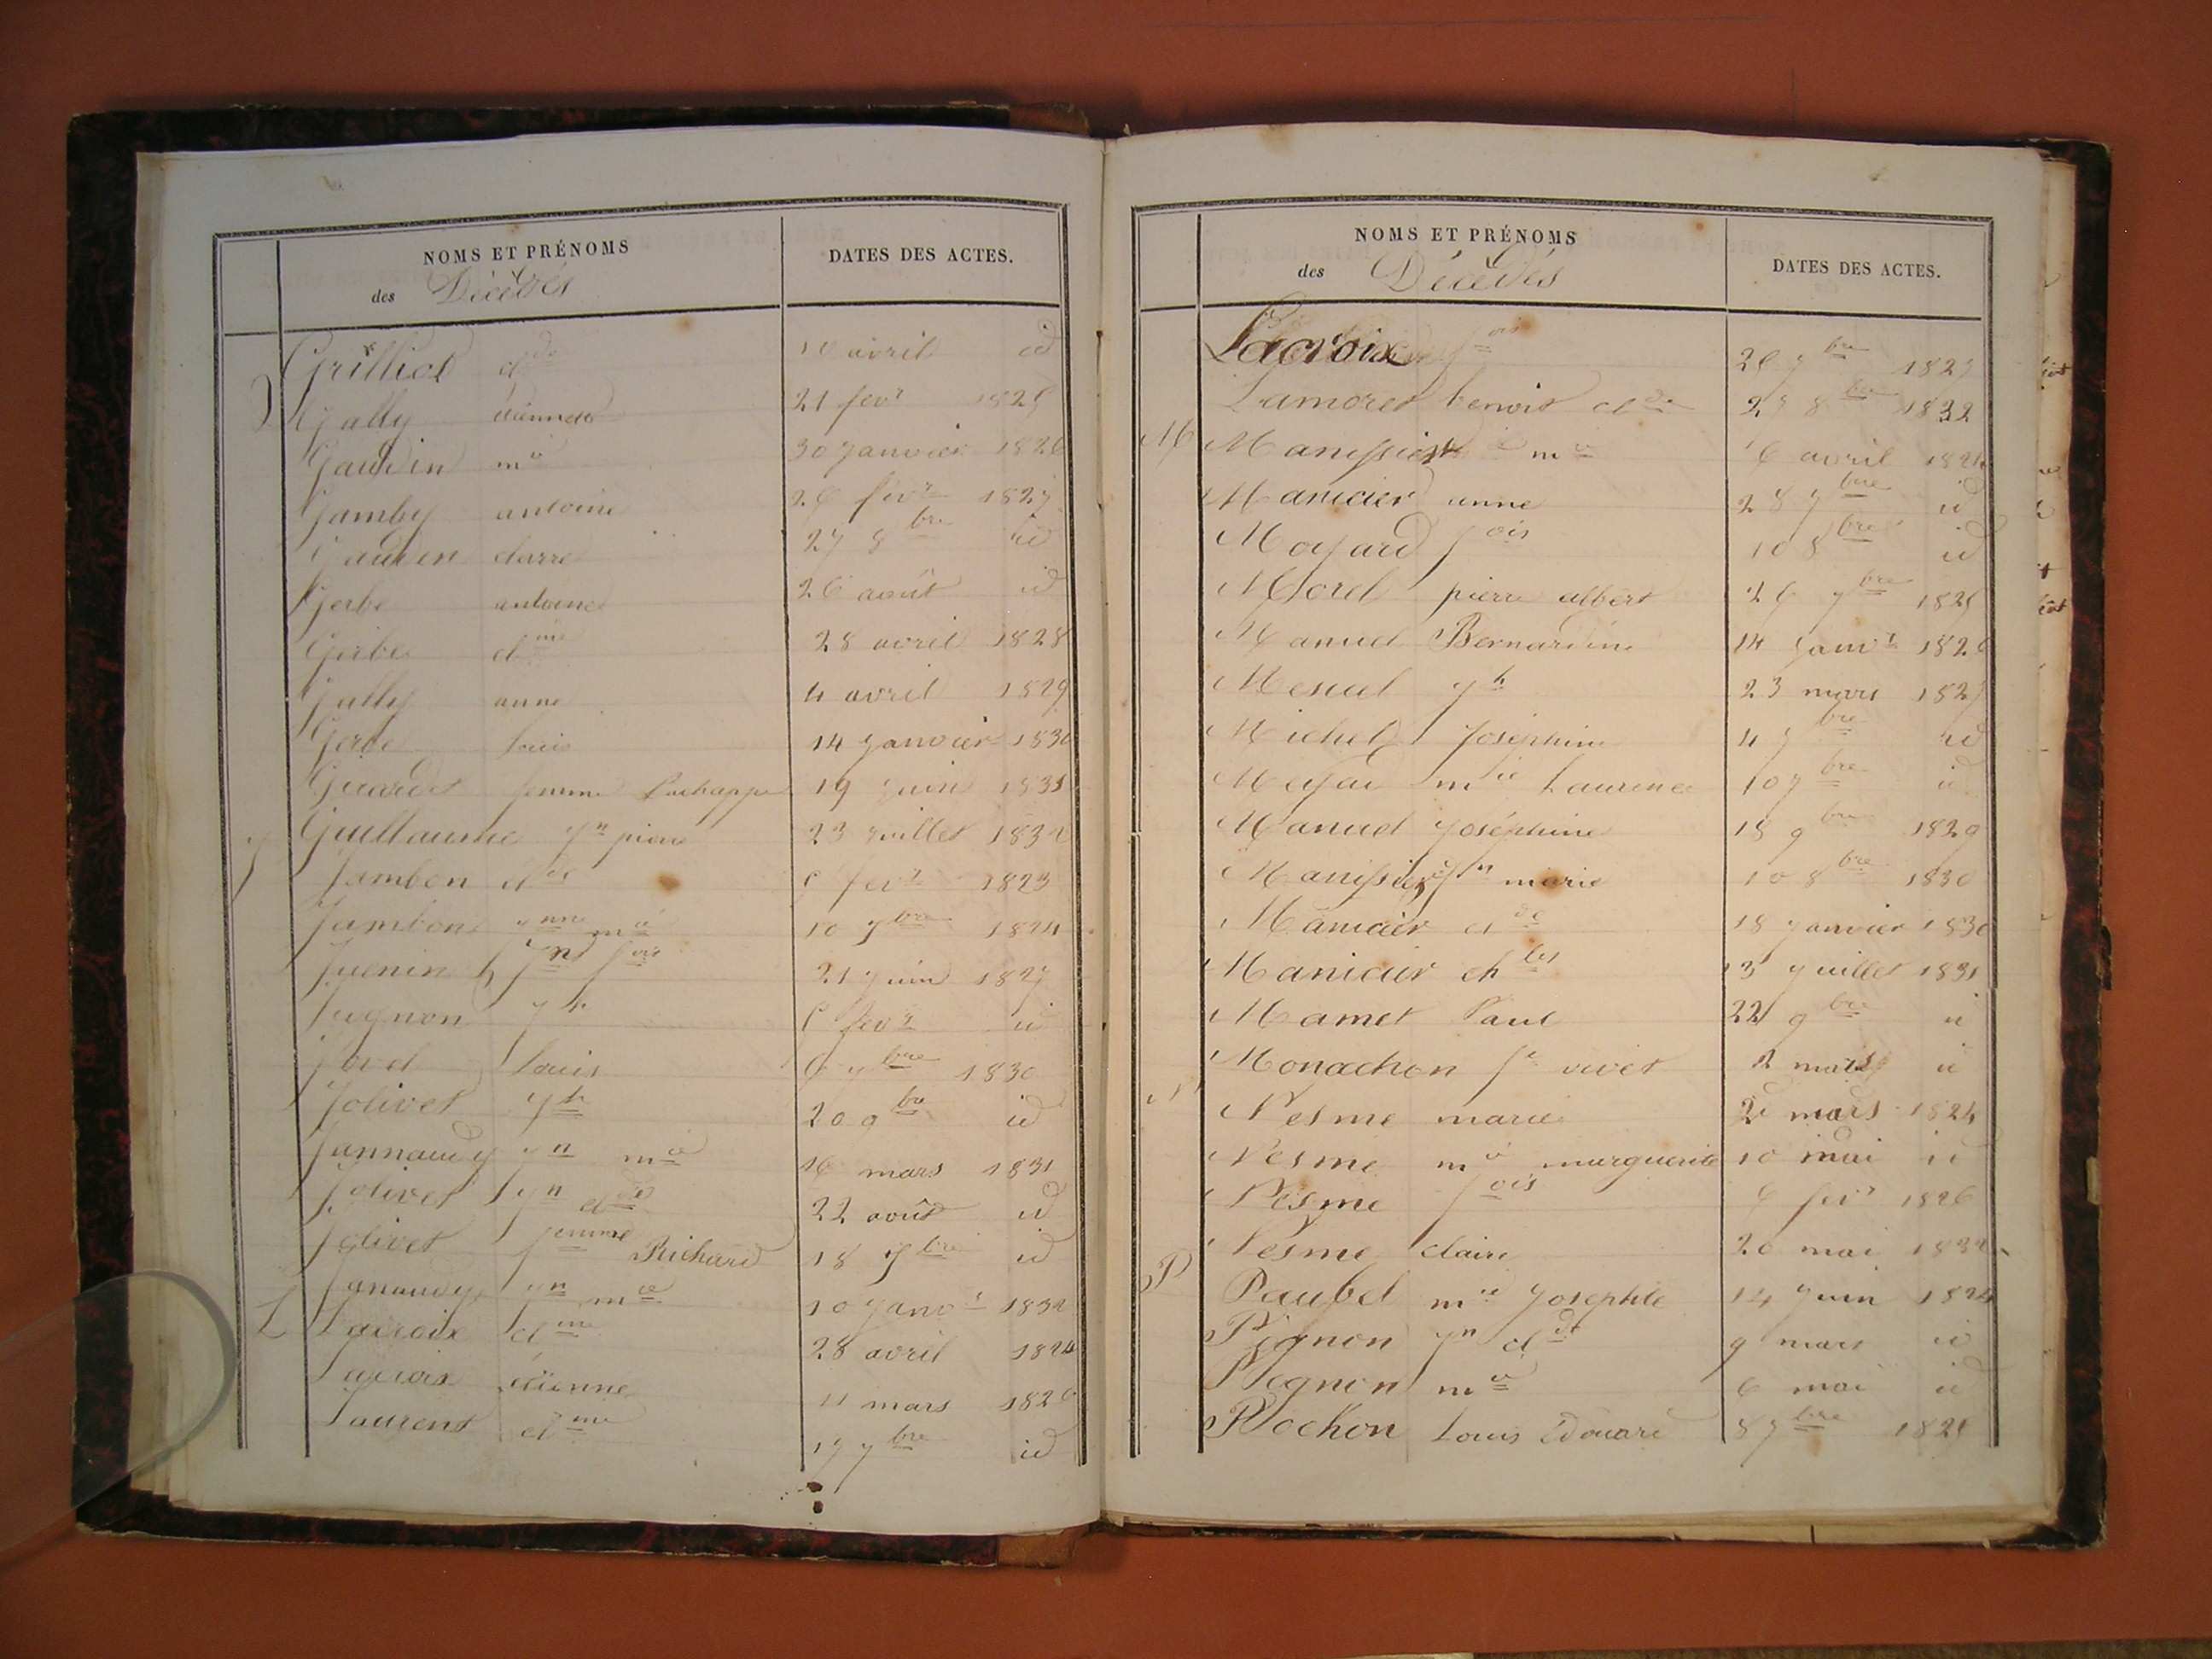 NOMS ET PRÉNOMS
des Décédés
DATES DES ACTES.
Grilliot cl de 10 avril id
Gally étiennette 21 fevr 1825
Gaudin m ie 30 janvier 1826
Gamby antoine 26 fevr 1827
Gaudin claire 27 8 bre id
Gerbe antoine 26 août id
Gerbe cl ine 28 avril 1828
Gally anne 4 avril 1829
Gerbe louis 14 janvier 1830
Girardet femme Lachappe 19 juin 1831
Guillaume jn pierre 23 juillet 1832
J Jambon cl de fevr 1823
Jambon j nne m ie 10 7 bre 1824
Juenin jn f ois 21 juin 1827
Jugnon j h fevr id
louis 7 bre 1830
Jolivet j h 20 9 bre id
Jannaudy jn m ie 16 mars 1831
Jolivet jn cl de 22 août id
Jolivet femme Richard 18 7 bre id
Janaudy jn m ie 10 janvr 1832
L Lacroix cl ine 28 avril 1824
Lacroix étienne 11 mars 1826
Laurent cl ine 17 7 bre id
NOMS ET PRÉNOMS
des Décédés
DATES DES ACTES.
Lacroix f ois 26 7 bre 1827
Lamoret benoit cl de 28 8 bre 1832
M Manissier m ie 6 avril 1824
Manicier anne 28 7 bre id
Moyard f ois 10 8 bre id
Morel pierre albert 26 7 bre 1825
Manuel Bernardine 14 janvr 1826
j h 23 mars 1827
Michel Joséphine 4 7 bre id
m ie Laurence 10 7 bre id
Manuel Joséphine 18 9 bre 1829
Manissier jn marie 10 8 bre 1830
Manicier cl de 18 janvier 1830
Manicier ch les 3 juillet 1831
Mamet Paul 22 9 bre id
Monachon fe vivet 2 mars id
N Nesme marie 2 mars 1824
Nesme m ie marguerite 10 mai id
Nesme f ois 6 fevr 1826
Nesme claire 20 mai 1832
P Paubel m ie Josephte 14 juin 1824
Pignon jn cl de 9 mars id
Pignon m ie 6 mai id
Pochon Louis Edouard 8 7 bre 1825